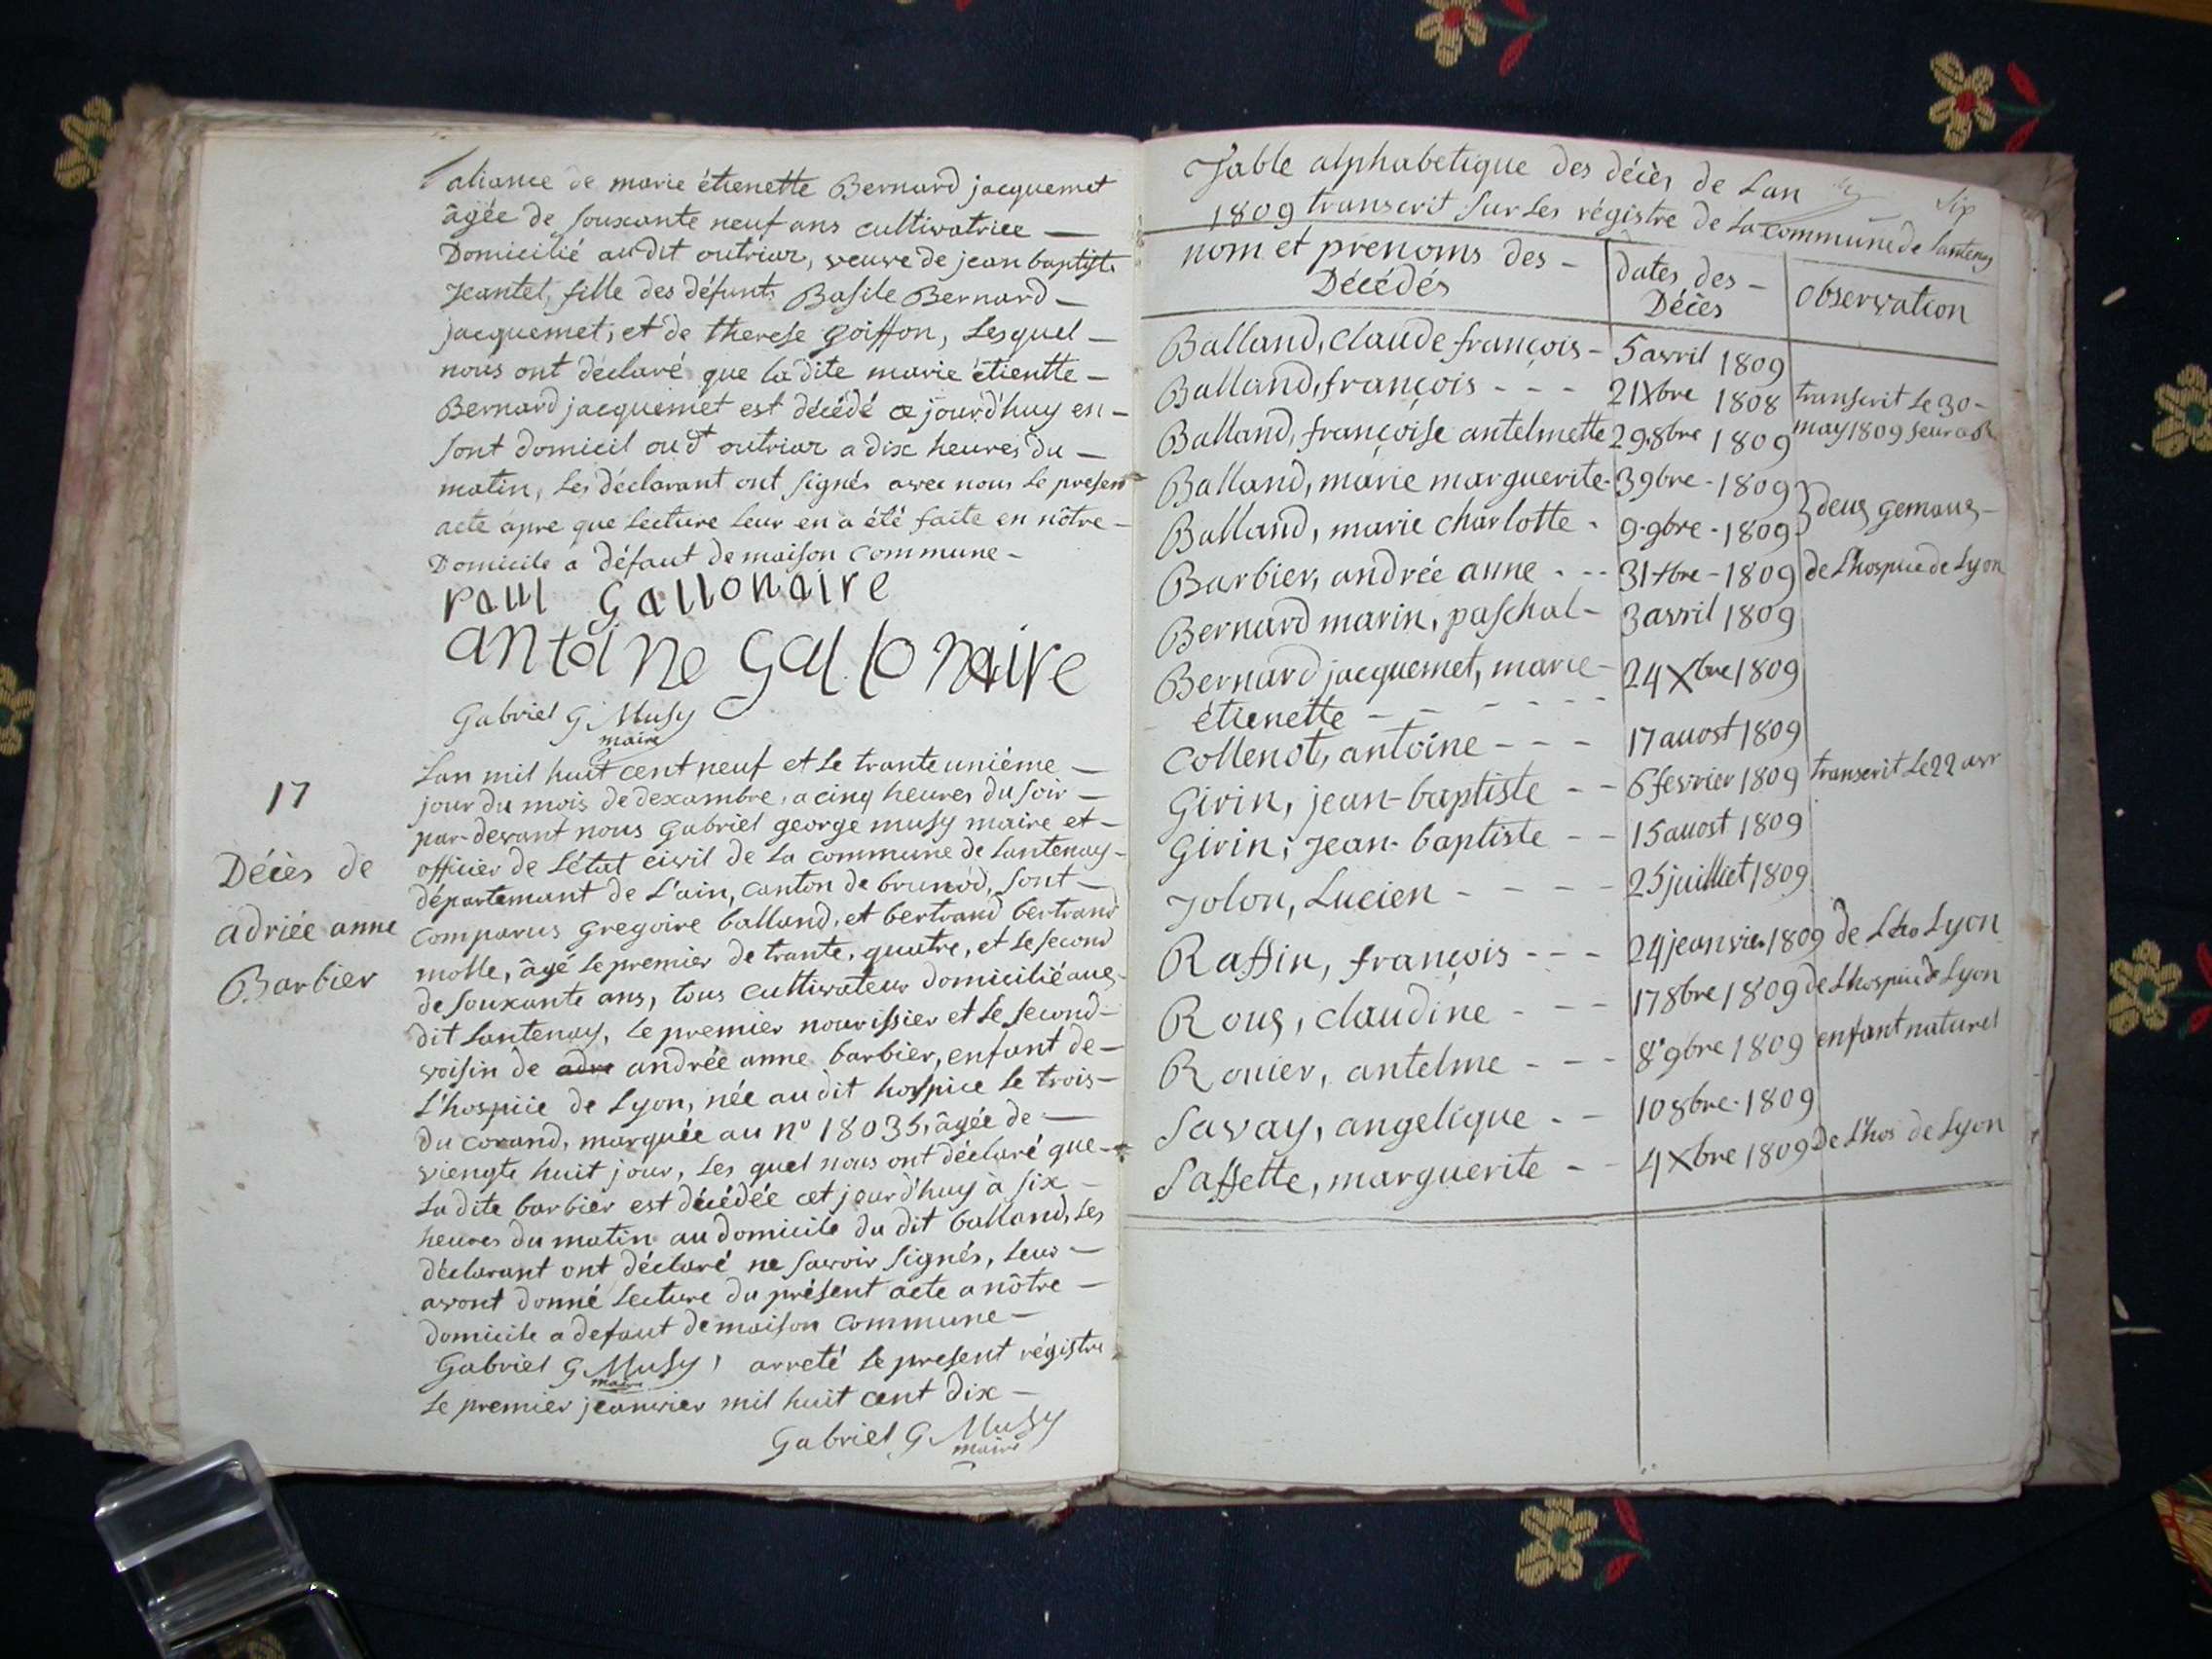 aliance de marie étienette Bernard jacquemet
âgée de souxante neuf ans cultivatrice —
Domicilié au dit outriar, veuve de jean baptiste
Jeantet, fille des défunts Basile Bernard —
jacquemet, et de therese goiffon, Lesquel —
nous ont déclaré que la dite marie étientte —
Bernard jacquemet est décédé ce jourd'huy en —
sont domicil oud outriar a dix heures du —
matin, les déclarant ont signés avec nous le presen
acte apre que lecture leur en a été faite en nôtre —
Domicile a défaut de maison commune —
Paul gallonaire
antoine gallonaire
Gabriel G Musy
maire
17
Décès de
adriée anne
Barbier
Lan mil huit cent neuf et le trante uniéme —
jour du mois de dexambre, a cinq heures du soir —
par-devant nous gabriel george musy maire et —
officier de L'état civil de la commune de Lantenay —
département de L'ain, canton de brunod, sont —
comparus gregoire balland, et bertrand bertrand
molle, âgé le premier de trante, quatre, et le second
de souxante ans, tous cultivateur domicilié aus
dit Lantenay, le premier nourissier et le second —
voisin de adre andrée anne barbier, enfant de —
L'hospice de Lyon, née au dit hospice le trois —
du corand, marquée au n° 18035, âgée de —
viengts huit jour, les quel nous ont déclaré que —
La dite barbier est décédée cet jourd'huy à six —
heures du matin au domicile du dit balland, Les
déclarant ont déclaré ne savoir signés, leur —
avont donné lecture du présent acte a nôtre —
domicile a defaut de maison commune —
Gabriel G Musy, arreté le present régistre
maire
le premier jeanvier mil huit cent dix —
Gabriel G Musy
maire
Table alphabetique des décès de Lan
six
1809 transcrit sur les régistre de la commune de Lantenay
nom et prenoms des —
Décédés
dates des —
Décès
observation
Balland, claude françois — 5 avril 1809
Balland, françois - - - 21 Xbre 1808 transcrit le 30 —
may 1809
Balland, françoise antelmette 29 8bre 1809
Balland, marie marguerite - 3 9bre - 1809
Balland, marie charlotte - 9 - 9bre - 1809 } deus gemaus —
Barbier, andrée anne - - - 31 xbre - 1809 de L'hospice de Lyon
Bernard marin, paschal — 3 avril 1809
Bernard jacquemet, marie — 24 Xbre 1809
étienette - - - - - -
Collenot, antoine - - - 17 auost 1809
Girin, jean-baptiste - - 6 fevrier 1809 transcrit le 22 avr
Girin, Jean-baptiste - - 15 auost 1809
Jolon, Lucien - - - - 25 juilliet 1809
Raffin, françois - - - 24 jeanvier 1809 de L'ho Lyon
Rous, claudine - - - 17 8bre 1809 de L'hospice de Lyon
Rouier, antelme - - - 8 9bre 1809 enfant naturel
Savay, angelique - - 10 8bre - 1809
Saffette, marguerite - - 4 Xbre 1809 De L'hos de Lyon